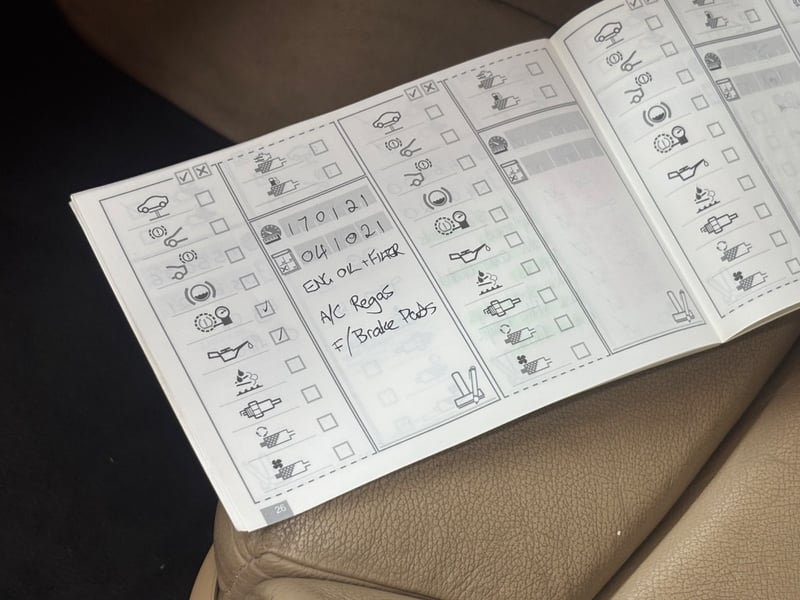 170121
041021
ENG OIL + FILTER
A/C Regas
F/Brake Pads
26